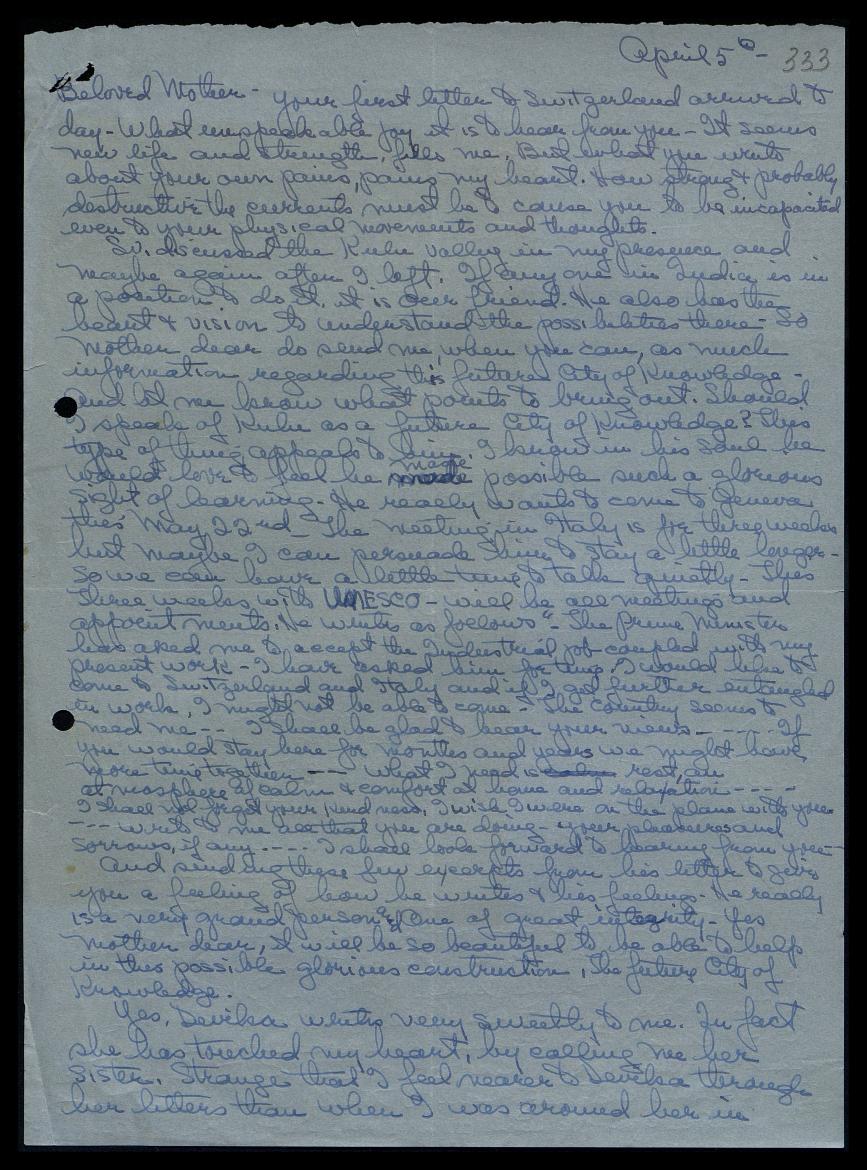 April 5th - 333
Beloved Mother - your first letter to Switzerland arrived to
day - What unspeakable joy it is to hear from you - It seems
new life and strength, fills me. But what you write
about your own pains, pains my heart. How strong & probably
destructive the currents must be to cause you to be incapacited
even to your physical movements and thoughts.
Sv. discussed the Kulu valley in my presence and
maybe again after I left. If any one in India is in
a position to do it, it is our friend. He also has the
heart & vision to understand the possibilities there - So
Mother dear do send me, when you can, as much
information regarding this future City of Knowledge -
And let me know what points to bring out. Should
I speak of Kulu as a future City of Knowledge? This
type of thing appeals to him. I know in his soul he
would love to feel he made possible such a glorious
sight of learning - He really wants to come to Geneva
this May 22nd - The meeting in Italy is for three weeks
but maybe I can persuade him to stay a little longer -
So we can have a little time to talk quietly - This
three weeks with UNESCO - will be all meetings and
appointments. He writes as follows "- The Prime Minister
has asked me to accept the Industrial job coupled with my
present work - I have asked him for time. I would like to
come to Switzerland and Italy and if I got further entangled
in work, I might not be able to come - The country seems to
need me - - I shall be glad to hear your views - - - - If
you would stay here for months and years we might have
more time together - - - what I need is rest, an
atmosphere of calm & comfort at home and relaxation - - - - -
I shall not forget your kindness, I wish I were on the plane with you -
- - - write to me all that you are doing - your pleasures and
sorrows, if any - - - - I shall look forward to hearing from you -
And sending these few excerpts from his letter to give
you a feeling of how he writes & his feelings - He really
is a very grand person & one of great integrity - Yes
Mother dear, it will be so beautiful to be able to help
in this possible glorious construction, the future City of
Knowledge.
Yes, Devika writes very sweetly to me. In fact
she has touched my heart, by calling me her
Sister. Strange that I feel nearer to Devika through
her letters than when I was around her in